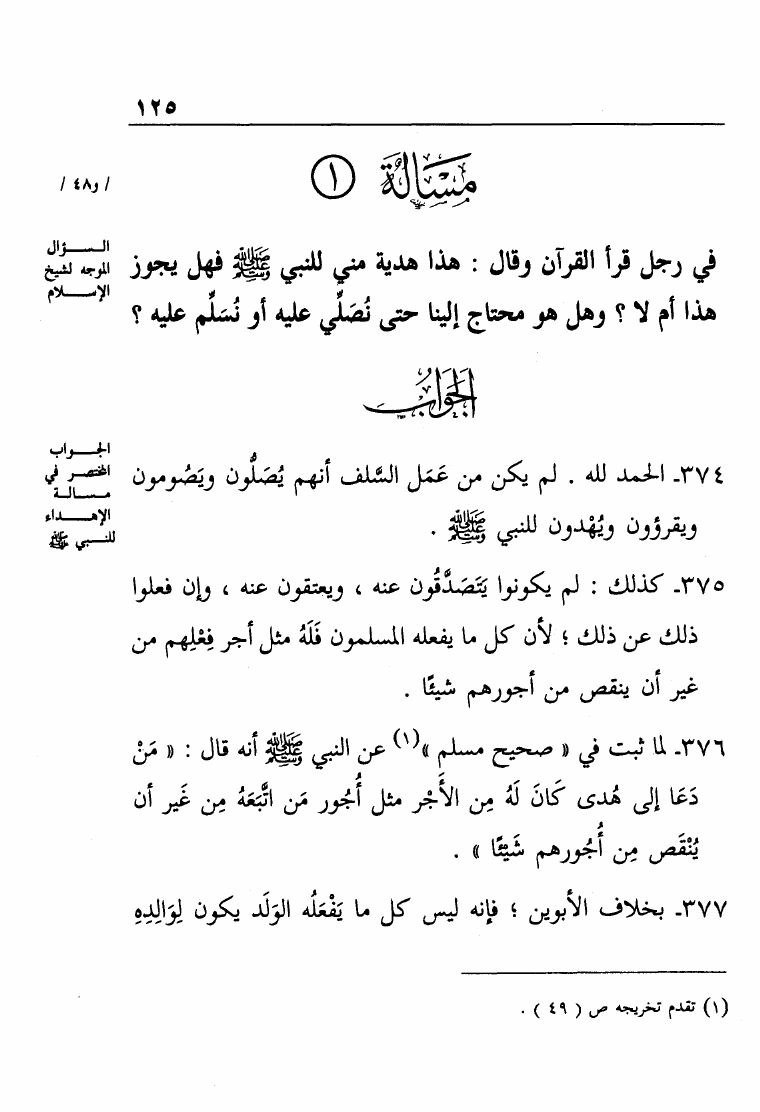 ١٢٥
مسألة ١
/ و٤٨ /
في رجل قرأ القرآن وقال : هذا هدية مني للنبي ﷺ فهل يجوز
هذا أم لا ؟ وهل هو محتاج إلينا حتى نُصَلِّي عليه أو نُسَلِّم عليه ؟
الســـؤال
الموجه لشيخ
الإســـلام
الجَوَابُ
٣٧٤ـ الحمد لله . لم يكن من عَمَل السَّلف أنهم يُصَلُّون ويَصُومون
ويقرؤون ويُهْدون للنبي ﷺ .
الجـــواب
المختصر في
مســـألة
الإهـــداء
للنـــبي ﷺ
٣٧٥ـ كذلك : لم يكونوا يَتَصَدَّقُون عنه ، ويعتقون عنه ، وإن فعلوا
ذلك عن ذلك ؛ لأن كل ما يفعله المسلمون فَلَهُ مثل أجر فِعْلِهم من
غير أن ينقص من أجورهم شيئًا .
٣٧٦ـ لما ثبت في « صحيح مسلم »(١) عن النبي ﷺ أنه قال : « مَنْ
دَعَا إلى هُدى كَانَ لَهُ مِن الأَجْر مثل أُجُور مَن اتَّبَعَهُ مِن غَير أن
يُنْقَص مِن أُجُورهم شَيْئًا » .
٣٧٧ـ بخلاف الأبوين ؛ فإنه ليس كل ما يَفْعَلُه الوَلَد يكون لِوَالِدِهِ
(١) تقدم تخريجه ص ( ٤٩ ) .